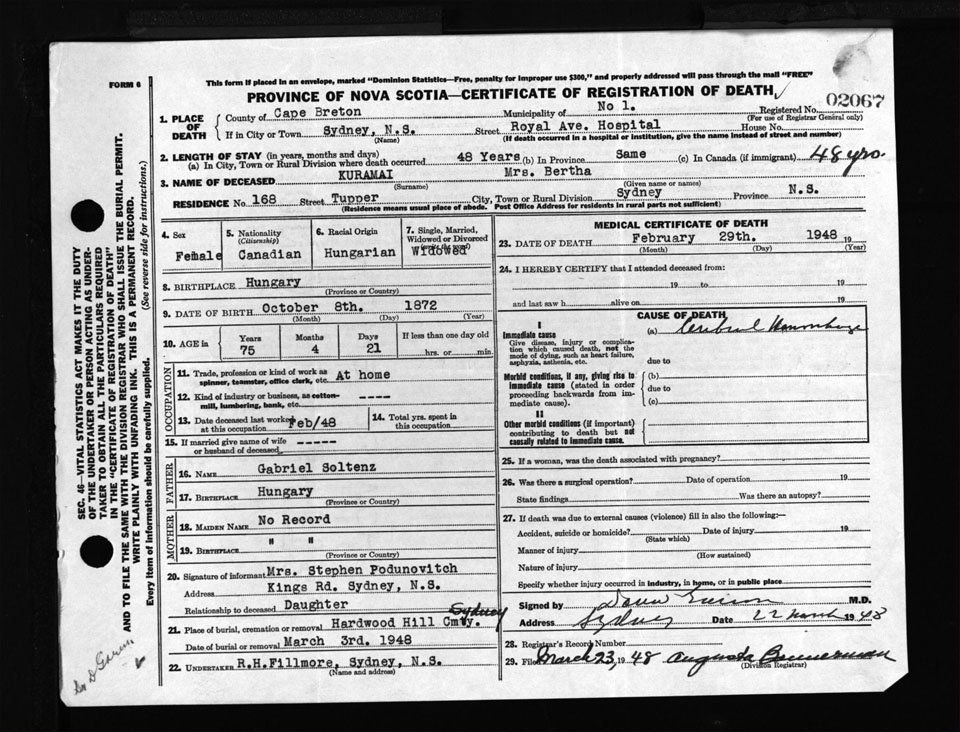 FORM 6
This form if placed in an envelope, marked "Dominion Statistics—Free, penalty for improper use $300," and properly addressed will pass through the mail "FREE"
PROVINCE OF NOVA SCOTIA—CERTIFICATE OF REGISTRATION OF DEATH
02067
1. PLACE OF DEATH
County of Cape Breton Municipality of No 1. Registered No.
(For use of Registrar General only)
If in City or Town Sydney, N.S. Street Royal Ave. Hospital House No.
(Name) (If death occurred in a hospital or institution, give the name instead of street and number)
2. LENGTH OF STAY (in years, months and days)
(a) In City, Town or Rural Division where death occurred 48 Years (b) In Province Same (c) In Canada (if immigrant) 48 yrs.
3. NAME OF DECEASED KURAMAI Mrs. Bertha
(Surname) (Given name or names)
RESIDENCE No 168 Street Tupper City, Town or Rural Division Sydney Province N.S.
(Residence means usual place of abode. Post Office Address for residents in rural parts not sufficient)
4. Sex
Female
5. Nationality
(Citizenship)
Canadian
6. Racial Origin
Hungarian
7. Single, Married, Widowed or Divorced
Widowed
8. BIRTHPLACE Hungary
(Province or Country)
9. DATE OF BIRTH October 8th. 1872
(Month) (Day) (Year)
10. AGE in
Years Months Days If less than one day old
75 4 21 hrs. or min.
OCCUPATION
11. Trade, profession or kind of work as spinner, teamster, office clerk, etc. At home
12. Kind of industry or business, as cotton-mill, lumbering, bank, etc. ----
13. Date deceased last worked at this occupation Feb/48
14. Total yrs. spent in this occupation
15. If married give name of wife or husband of deceased -----
FATHER
16. NAME Gabriel Soltenz
17. BIRTHPLACE Hungary
(Province or Country)
MOTHER
18. MAIDEN NAME No Record
19. BIRTHPLACE " "
(Province or Country)
20. Signature of informant Mrs. Stephen Podunovitch
Address Kings Rd. Sydney, N.S.
Relationship to deceased Daughter
21. Place of burial, cremation or removal Hardwood Hill Cmty. Sydney
Date of burial or removal March 3rd. 1948
22. UNDERTAKER R.H.Fillmore, Sydney, N.S.
(Name and address)
MEDICAL CERTIFICATE OF DEATH
23. DATE OF DEATH February 29th. 1948 19
(Month) (Day) (Year)
24. I HEREBY CERTIFY that I attended deceased from:
19 to 19
and last saw h alive on 19
CAUSE OF DEATH
I
Immediate cause (a) Cerebral Hemorrhage
Give disease, injury or complication which caused death, not the mode of dying, such as heart failure, asphyxia, asthenia, etc.
due to
Morbid conditions, if any, giving rise to immediate cause (stated in order proceeding backwards from immediate cause).
(b)
due to
(c)
II
Other morbid conditions (if important) contributing to death but not causally related to immediate cause.
25. If a woman, was the death associated with pregnancy?
26. Was there a surgical operation? Date of operation 19
State findings Was there an autopsy?
27. If death was due to external causes (violence) fill in also the following:—
Accident, suicide or homicide? Date of injury 19
(State which)
Manner of injury
(How sustained)
Nature of injury
Specify whether injury occurred in industry, in home, or in public place
Signed by M.D.
Address Sydney Date 22 March 1948
28. Registrar's Record Number
29. Filed March 23, 1948 Augusta Bannerman
(Division Registrar)
SEC. 46—VITAL STATISTICS ACT MAKES IT THE DUTY
OF THE UNDERTAKER OR PERSON ACTING AS UNDER-
TAKER TO OBTAIN ALL THE PARTICULARS REQUIRED
IN THE "CERTIFICATE OF REGISTRATION OF DEATH"
AND TO FILE THE SAME WITH THE DIVISION REGISTRAR WHO SHALL ISSUE THE BURIAL PERMIT.
WRITE PLAINLY WITH UNFADING INK. THIS IS A PERMANENT RECORD.
Every item of information should be carefully supplied. (See reverse side for instructions.)